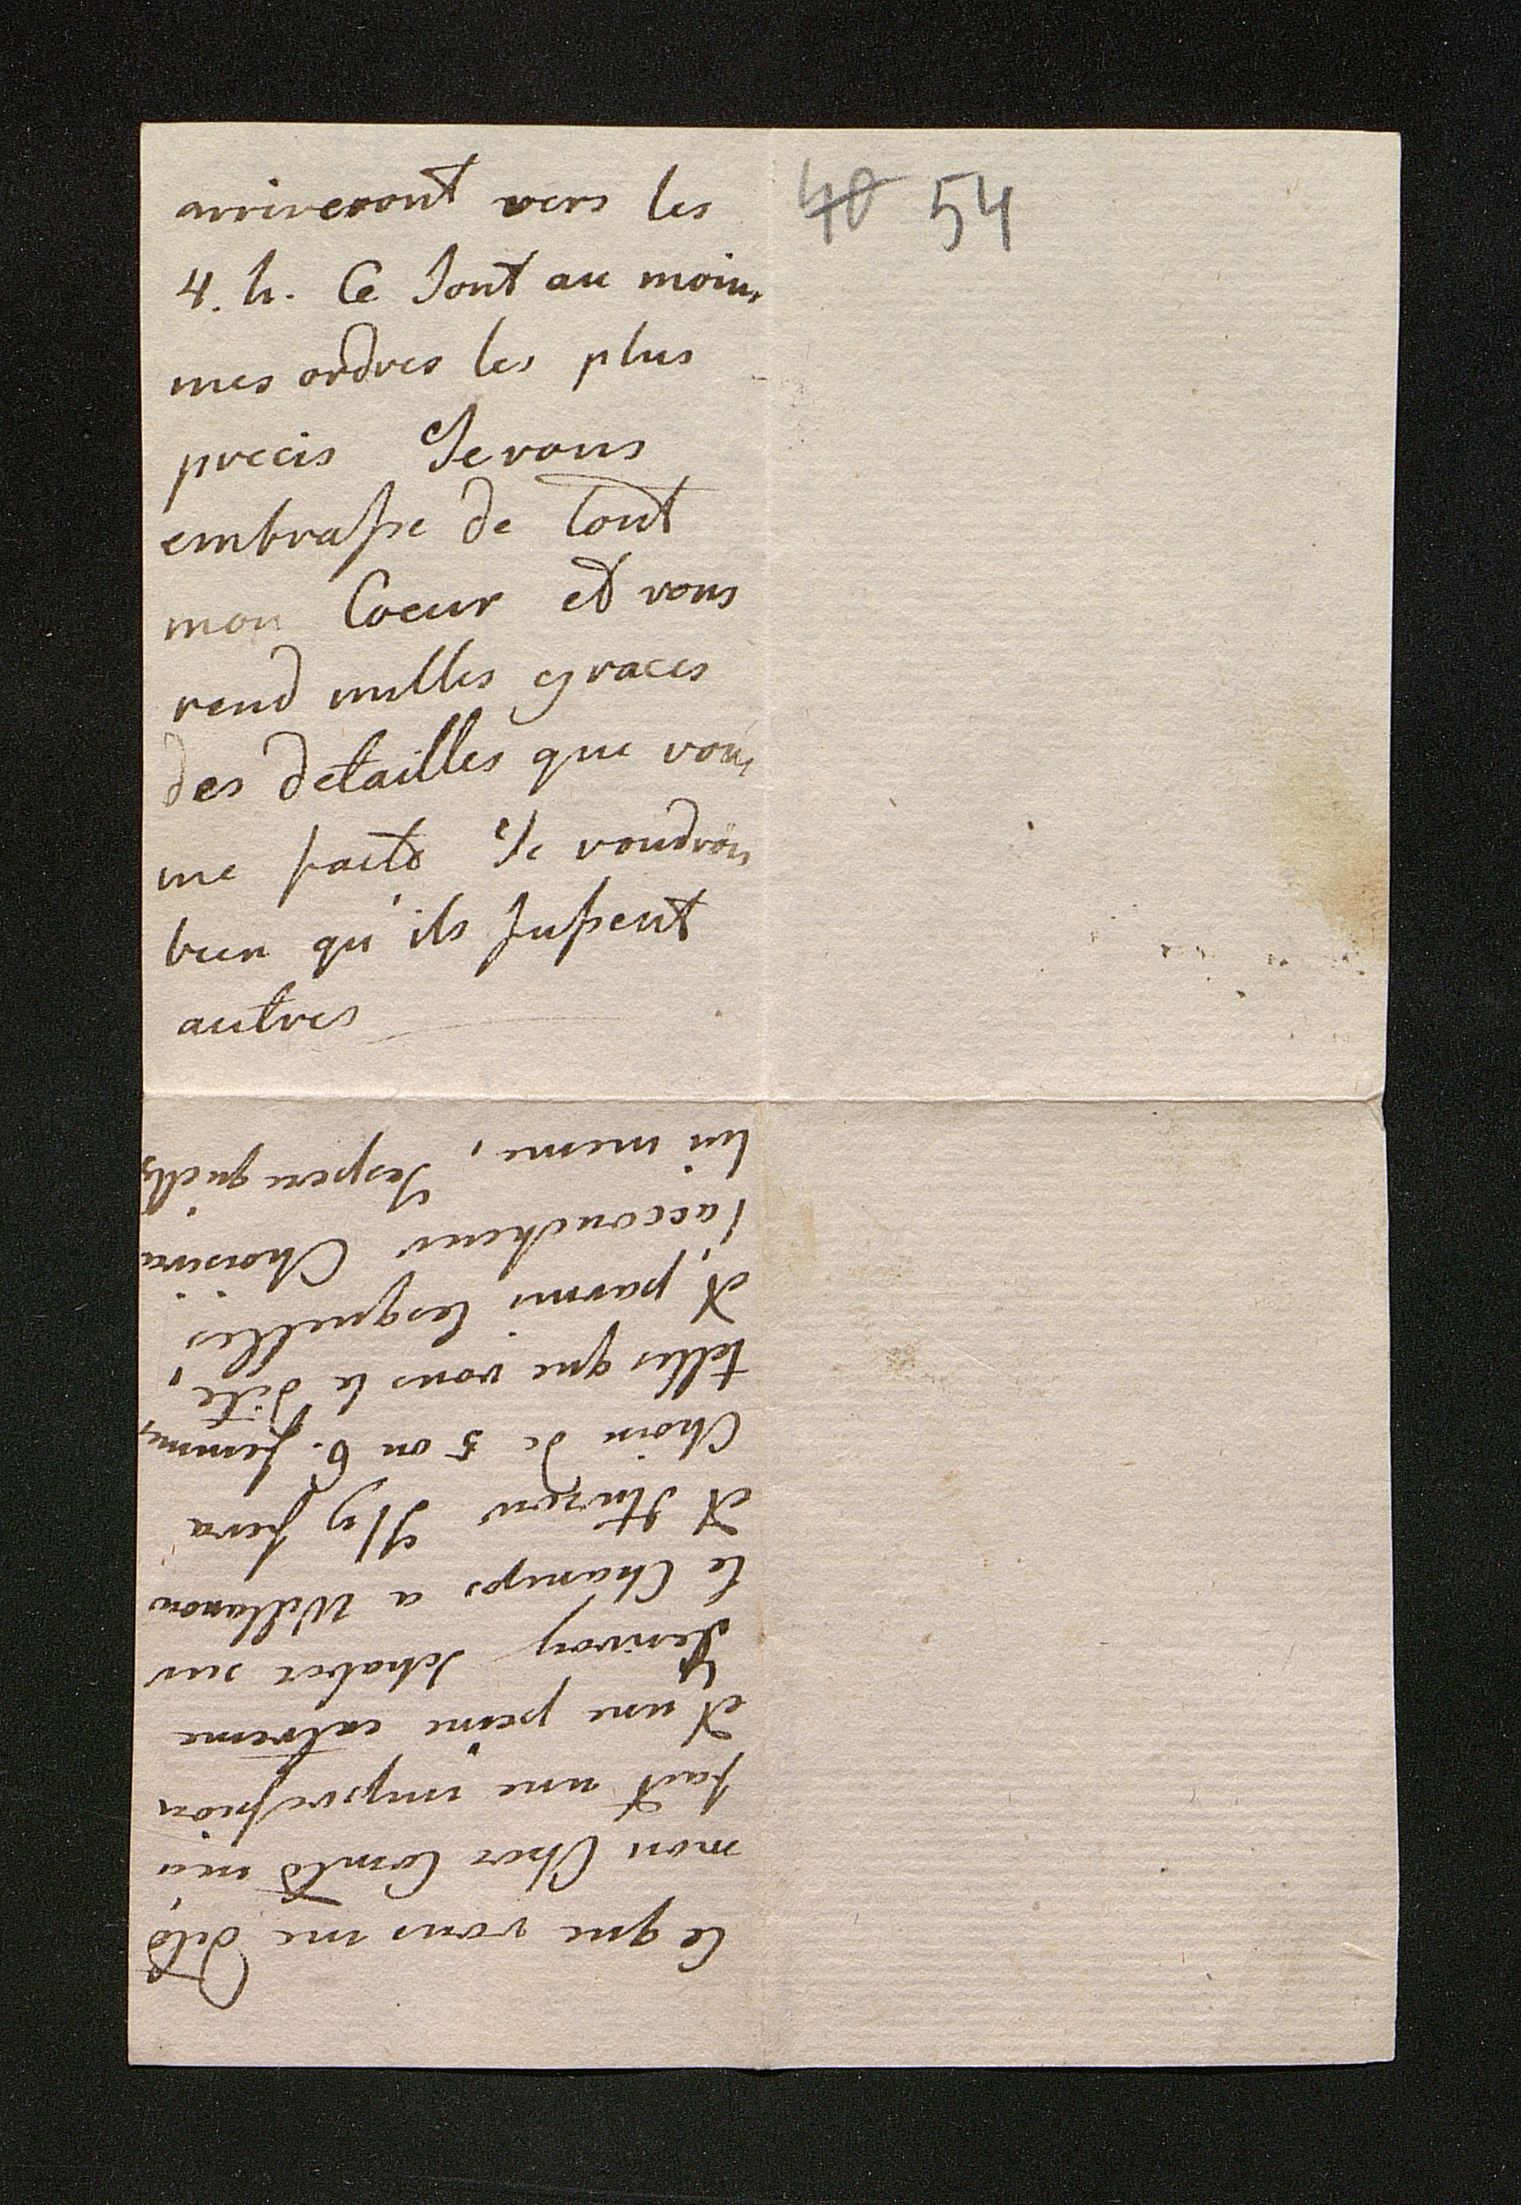 Ce que vous me dite,
mon Cher Comte m'a
fait une impression
et une peine extreme
J'envoy schabot sur
le Champs a Willanow
et Sluzew Il y fera
Choix de 5 ou 6. femmes
telles que vous le dite,
et parmi lesquelles
l'accoucheur Choisira
lui meme, Jespere quelles
arriveront vers les
4. h. Ce sont au moins
mes ordres les plus
precis Je vous
embrasse de tout
mon Coeur et vous
rend milles graces
des detailles que vous
me faite Je voudrois
bien qu'ils fussent
autres
40 54